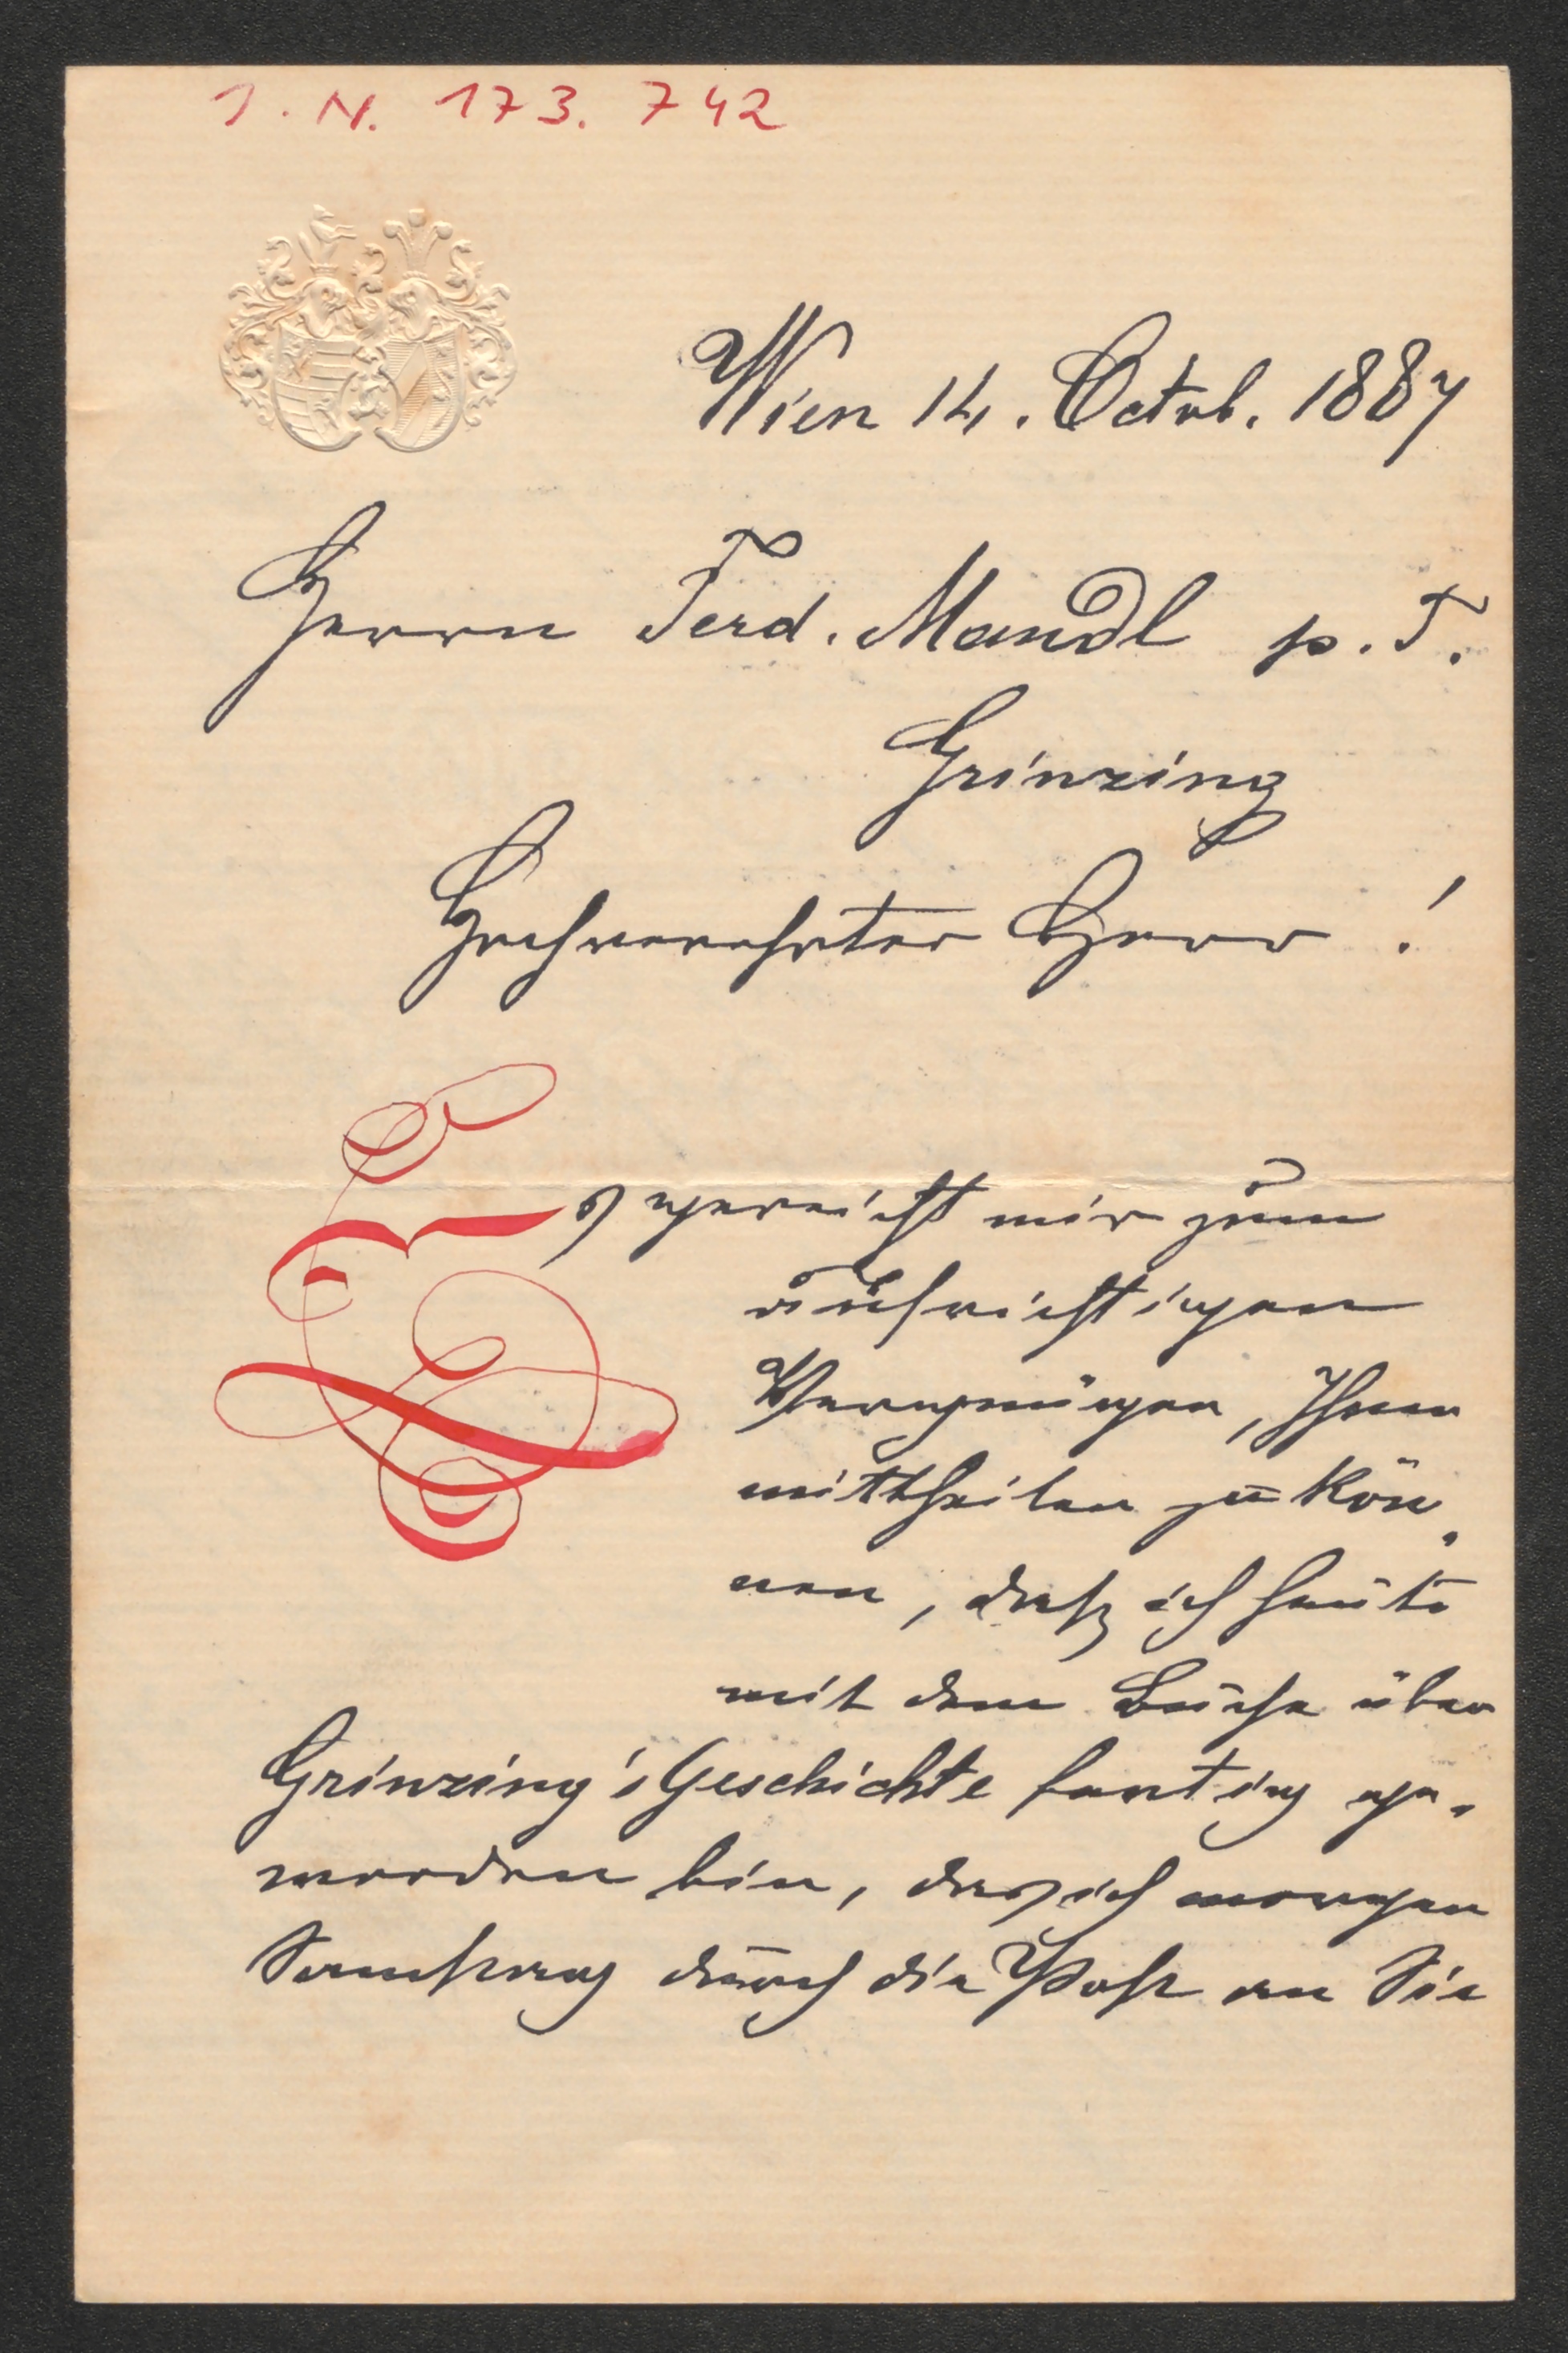 J. N. 173. 742
Wien 14. Octob. 1887
Herrn Ferd. Mandl p. T.
Grinzing
Hochverehrter Herr !
Es gereicht mir zum
aufrichtigen
Vergnügen, Ihnen
mittheilen zu kön-
nen, daß ich heute
mit dem Buche über
Grinzing's Geschichte fertig ge-
worden bin, das ich morgen
Samstag durch die Post an Sie